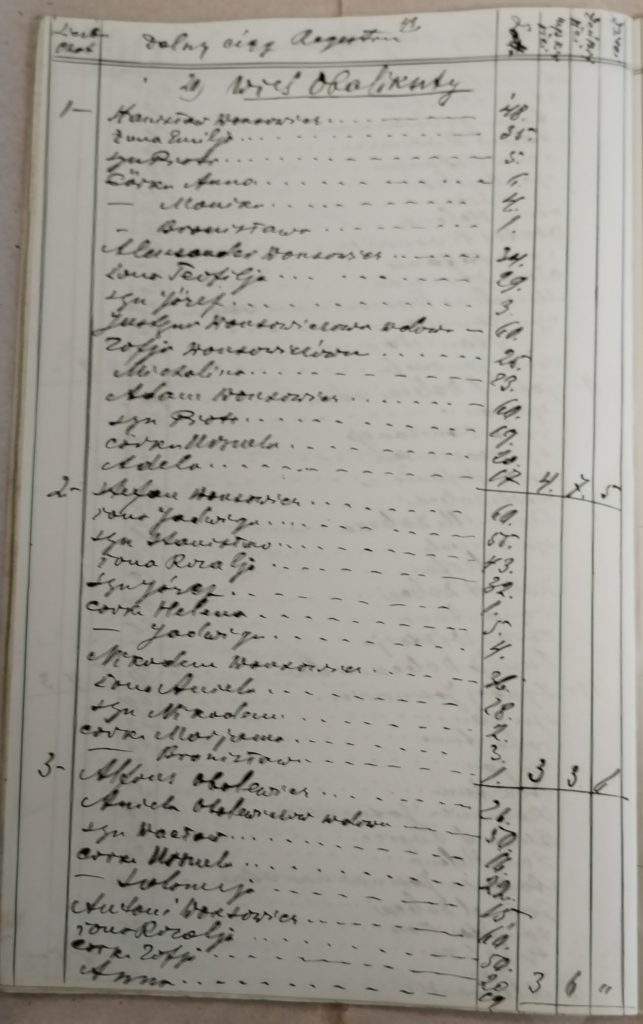 Dalszy ciąg Regestru
20) Wieś Obalikuty
1 — Stanisław Wonsowicz 48.
żona Emilja 35.
syn Piotr 5.
Córka Anna 6.
— Monika 4.
— Bronisława 1.
Aleksander Wonsowicz 34.
żona Teofilja 29.
syn Józef 3.
Justyna Wonsowiczowa wdowa — 60.
Zofja Wonsowiczówna 26.
Michalina 23.
Adam Wonsowicz 60.
syn Piotr 19.
córka Urszula 20.
Adela 17 4. 7. 5
2 - Stefan Wonsowicz 60.
żona Jadwiga 55.
syn Stanisław 43.
żona Rozalja 32.
syn Józef 1.
córka Helena 5.
— Jadwiga 4.
Nikodem Wonsowicz
żona Aniela 28
syn Nikodem
córka Marjanna 3
— Bronisława 1. 3 3
3 - Alfons Obolewicz 26.
Aniela Obolewiczow wdowa 50.
syn Wacław 16.
córka Urszula 22.
— Salomeja 15
Antoni Wonsowicz 60.
żona Rozalja 50.
córka Zofja 20
Anna 3 6 "